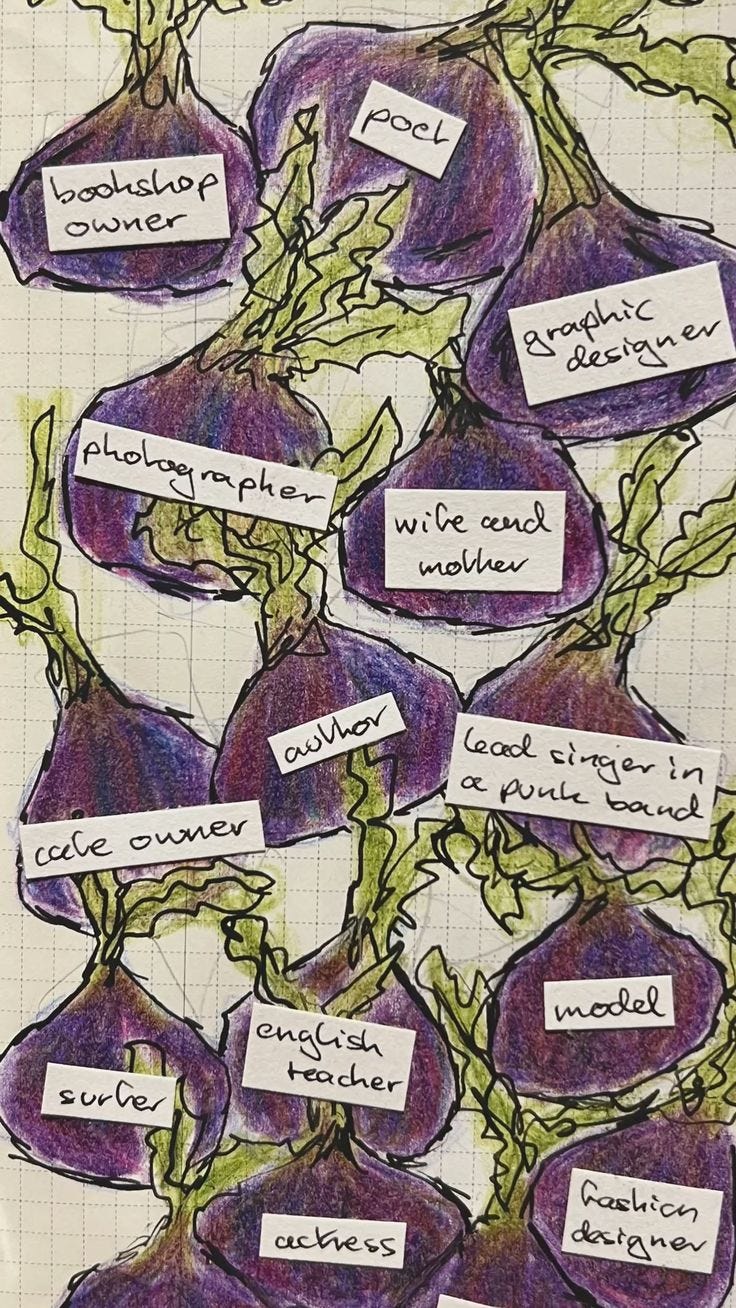 poet
bookshop
owner
graphic
designer
photographer
wife and
mother
author
lead singer in
a punk band
cafe owner
model
english
teacher
surfer
fashion
designer
actress